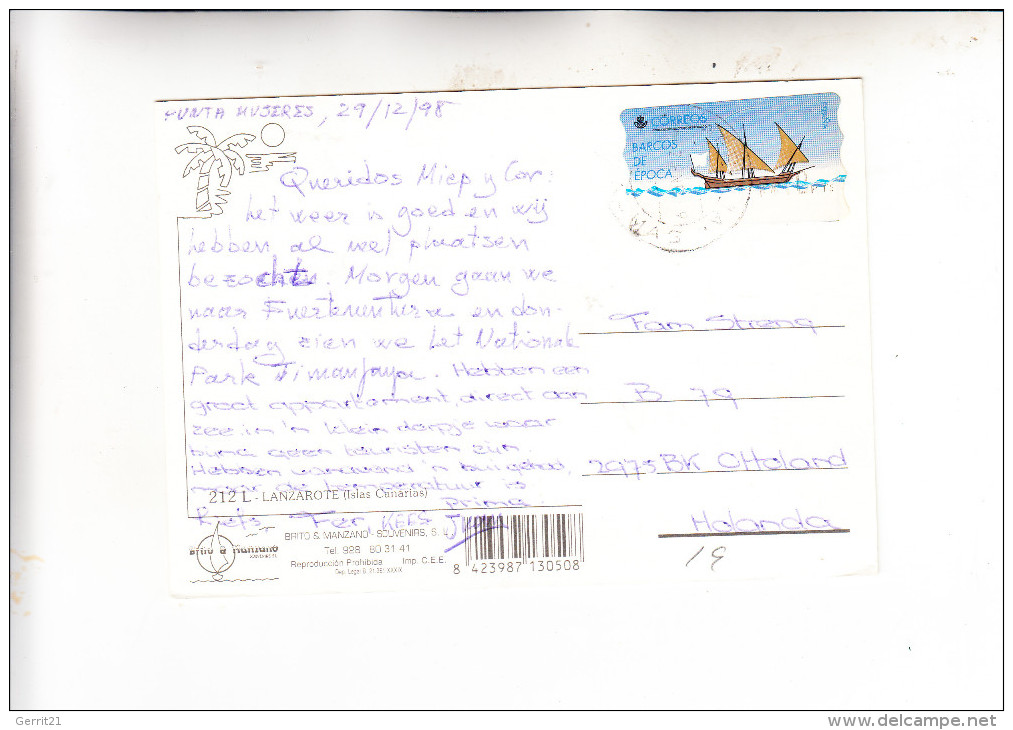 PUNTA MUJERES, 29/12/98
CORREOS
BARCOS
DE
ÉPOCA
Queridos Miep y Cor:
het weer is goed en wij
hebben al veel plaatsen
bezocht. Morgen gaan we
naar Fuerteventura en don-
derdag zien we het Nationale
Park Timanfaya. Hebben een
groot appartement, direct aan
zee in 'n klein dorpje waar
bijna geen toeristen zijn.
Hebben vanavond 'n bui gehad,
maar de temperatuur is
prima.
Fer, KEES
Fam Streng
B 79
2975 BK Ottoland
Holanda
19
212 L - LANZAROTE (Islas Canarias)
Brito & Manzano
BRITO & MANZANO - SOUVENIRS, S. L.
Tel. 928 80 31 41
Reproducción Prohibida Imp. C.E.E.
8 423987 130508
Gerrit21
www.delcampe.net